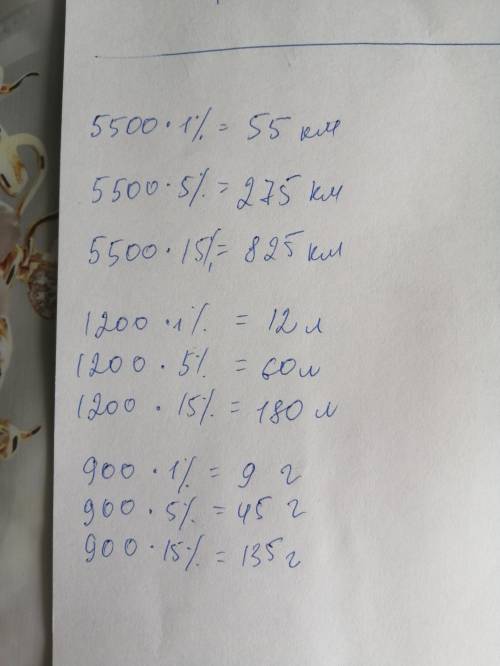 5500 · 1% = 55 км
5500 · 5% = 275 км
5500 · 15% = 825 км
1200 · 1% = 12 л
1200 · 5% = 60 л
1200 · 15% = 180 л
900 · 1% = 9 г
900 · 5% = 45 г
900 · 15% = 135 г